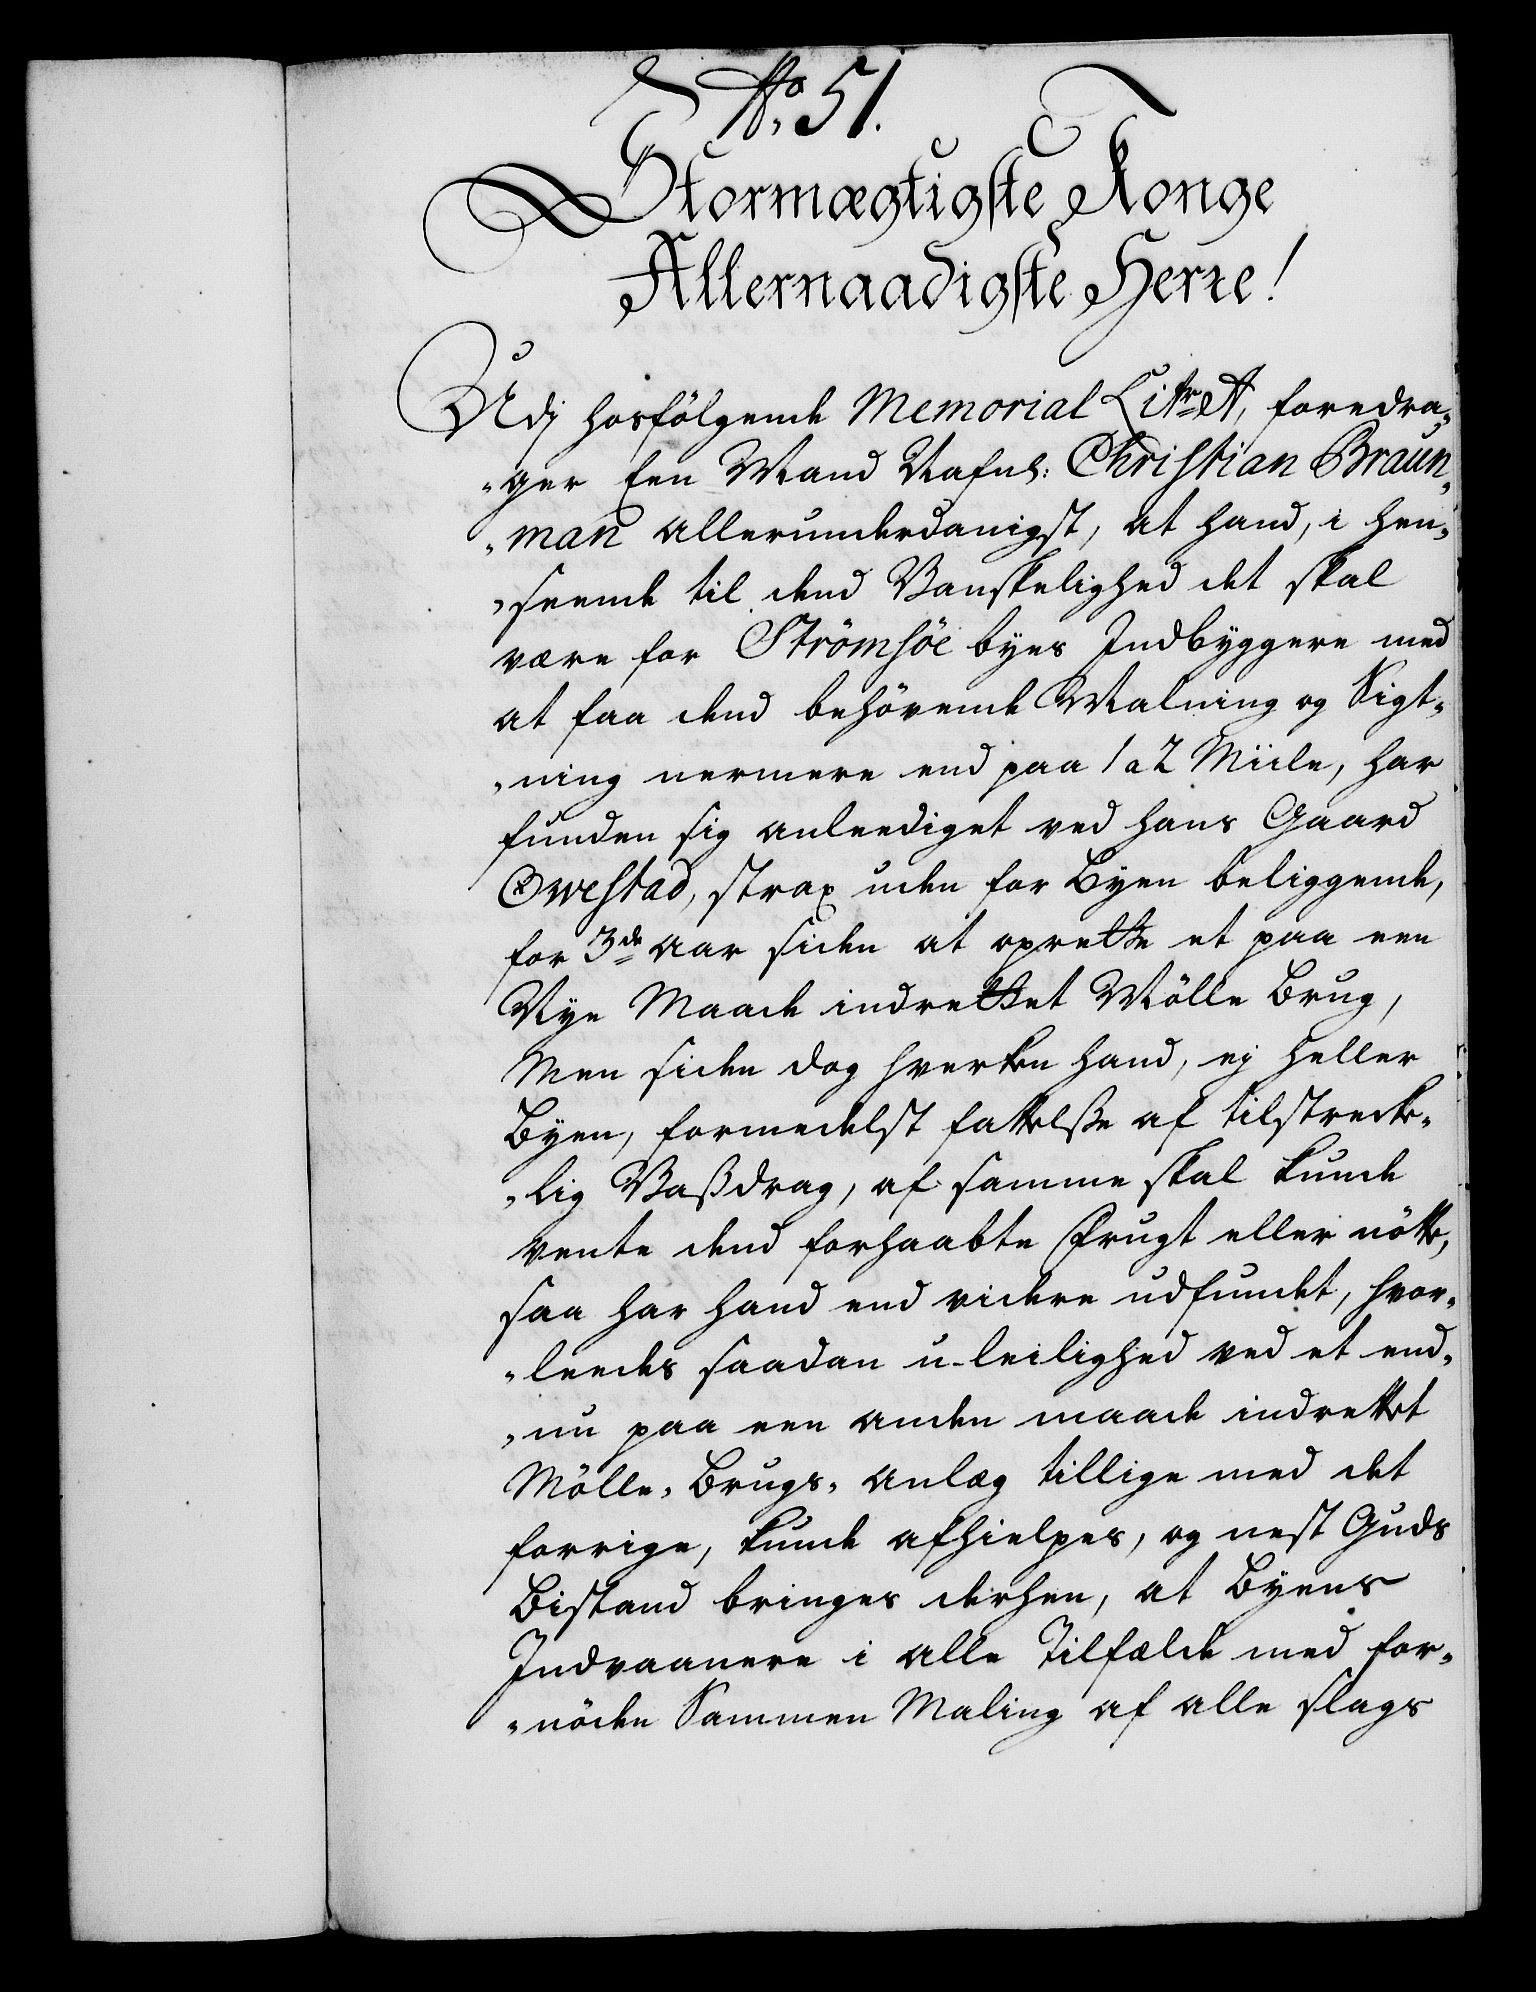 No. 51.
Stormægtigste Konge
Allernaadigste Herre!
Udj hosfölgende Memorial Litr A, foredra„
„ger Een Mand Nafnl: Christian Braun„
„man allerunderdanigst, at hand, i hen„
„seende til dend Vanskelighed det skal
være for Strömsöe byes Indbyggere med
at faa dend behövende Malning og Sigt„
„ning nermere end paa 1 a 2 Miile, har
funden sig anleediget ved hans Gaard
Owestad, strax uden for Byen beliggende,
for 3de aar siden at oprette et paa een
Nye Maade indrettet Mölle Brug,
Men siden dog hverken hand, ej heller
Byen, formedelst fattelsse af tilstrecke„
„lig Vassdrag, af samme skal kunde
vente dend forhaabte Frugt eller nötte,
saa har hand end videre udfundet, hvor„
„leedes saadan u-leilighed ved et end„
„nu paa een anden maade indrettet
Mölle„ Brugs„ anlæg tillige med det
forrige, kunde afhielpes, og nest Guds
Bistand bringes derhen, at Byens
Indvaanere i alle Tilfælde med for„
„nöden Sammen Maling af alle slags